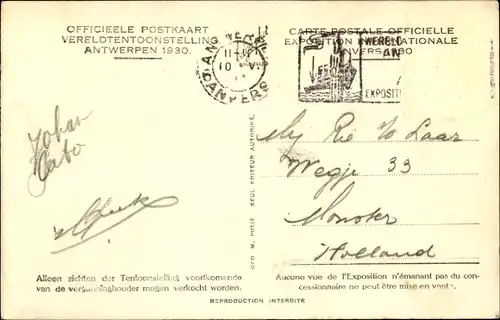 OFFICIEELE POSTKAART
VERELDTENTOONSTELLING
ANTWERPEN 1930.
CARTE POSTALE OFFICIELLE
EXPOSITION INTERNATIONALE
ANVERS 1930
ANTWERPEN
10 VI
ANVERS
WERELD
AN
EXPOSITI
Johan
Cato
Mej Rie
Laar
Wegje 33
Monster
Holland
GEO M. POTIÉ SEUL EDITEUR AUTORISÉ.
Alleen zichten der Tentoonstelling voortkomende
van de vergunninghouder mogen verkocht worden.
Aucune vue de l'Exposition n'émanant pas du con-
cessionnaire ne peut être mise en vente.
REPRODUCTION INTERDITE